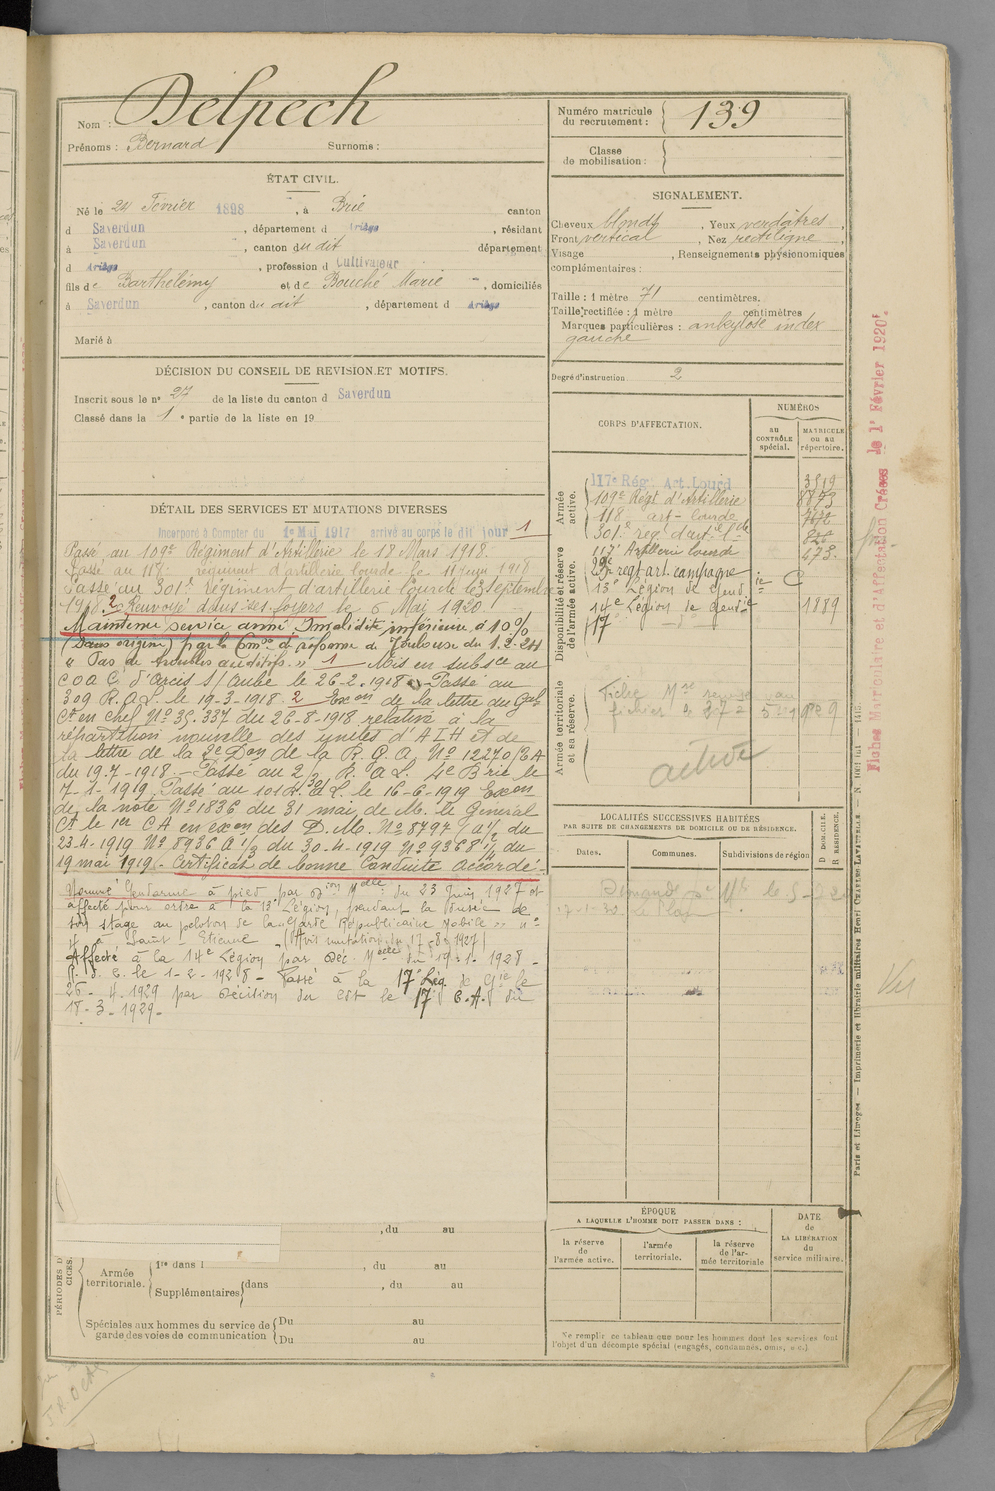 Nom : Delpech
Prénoms : Bernard Surnoms :
ÉTAT CIVIL.
Né le 24 Février 1898, à Brie canton
d Saverdun, département d Ariège, résidant
à Saverdun, canton du dit département
d Ariège, profession d Cultivateur
fils de Barthélémy et de Bouché Marie, domiciliés
à Saverdun, canton du dit, département d Ariège
Marié à
DÉCISION DU CONSEIL DE REVISION ET MOTIFS.
Inscrit sous le n° 27 de la liste du canton d Saverdun
Classé dans la 1e partie de la liste en 19
DÉTAIL DES SERVICES ET MUTATIONS DIVERSES
Incorporé à Compter du 1er Mai 1917 arrivé au corps le dit jour 1
Passé au 109e Régiment d'Artillerie le 18 Mars 1918.
Passé au 118e régiment d'artillerie lourde le 11 Juin 1918
Passé au 301e Régiment d'artillerie lourde le 3 Septembre
1918. 2 Renvoyé dans ses foyers le 6 Mai 1920.
Maintenu service armé Invalidité inférieure à 10%
(sans origine) par la Comon de réforme de Toulouse du 1.2.24
" Pas de troubles auditifs. " 1 Mis en subsce au
C O A C d'Arcis s/Aube le 26-2-1918 Passé au
309 R.A.L. le 19-3-1918. 2 Exon de la lettre du Gal
Ct en chef No 35.337 du 26-8-1918 relative à la
répartition nouvelle des unités d'A L H et de
la lettre de la 2e Don de la R.G.A. No 12270/3A
du 19-7-1918. Passé au 2/3 R.A.L. 4e Brie le
7-1-1919. Passé au 101 R.A.L. le 16-6-1919 Exon
de la note No 1836 du 31 mai de M. le Général
Ct le 1er CA en exon des D.M. No 8797 / a ½ du
23-4-1919 No 8936 A ½ du 30-4-1919 No 9368 ½ du
19 mai 1919. Certificat de bonne Conduite accordé.
Nommé Gendarme à pied par Don Melle du 23 Juin 1927 et
affecté pour ordre à la 13e Légion pendant la durée de
son stage au peloton de la Garde Républicaine Mobile no
4 à Saint-Etienne (Avis mutation du 17-8-1927)
Affecté à la 14e Légion par Déc. Melle du 19-1-1928
P. d. C. le 1-2-1928 - Passé à la 17e Lég. de Gie le
26-4-1929 par Décision du Ct le 17 C.A. du
18-3-1929.
, du au
Armée territoriale. 1re dans l , du au
Supplémentaires dans , du au
Spéciales aux hommes du service de garde des voies de communication Du au
Du au
Numéro matricule du recrutement : 139
Classe de mobilisation :
SIGNALEMENT.
Cheveux blonds, Yeux verdâtres,
Front vertical, Nez rectiligne,
Visage , Renseignements physionomiques
complémentaires :
Taille : 1 mètre 71 centimètres.
Taille rectifiée : 1 mètre centimètres
Marques particulières : ankylose index
gauche
Degré d'instruction. 2
CORPS D'AFFECTATION.
NUMÉROS
au CONTRÔLE spécial.
MATRICULE ou au répertoire.
Armée active.
117e Rég. Art. Lourd 3519
109e Régt d'Artillerie 8873
118 art lourde
301e reg d'art. lde
Disponibilité et réserve de l'armée active.
117 Artillerie lourde 473.
regt art. campagne C
13e Légion de Gend ie
14e Légion de Gend ie 1889
17e
Armée territoriale et sa réserve.
Fiche
active
LOCALITÉS SUCCESSIVES HABITÉES
PAR SUITE DE CHANGEMENTS DE DOMICILE OU DE RÉSIDENCE.
Dates. Communes. Subdivisions de région
D DOMICILE.
R RÉSIDENCE.
17-1-30
ÉPOQUE
A LAQUELLE L'HOMME DOIT PASSER DANS :
la réserve de l'armée active.
l'armée territoriale.
la réserve de l'armée territoriale
DATE de LA LIBÉRATION du service militaire.
Ne remplir ce tableau que pour les hommes dont les services font
l'objet d'un décompte spécial (engagés, condamnés, omis, etc.)
Paris et Limoges. — Imprimerie et librairie militaires Henri CHARLES-LAVAUZELLE.
Fiches Matriculaire et d'Affectation Créées le 1r Février 1920.